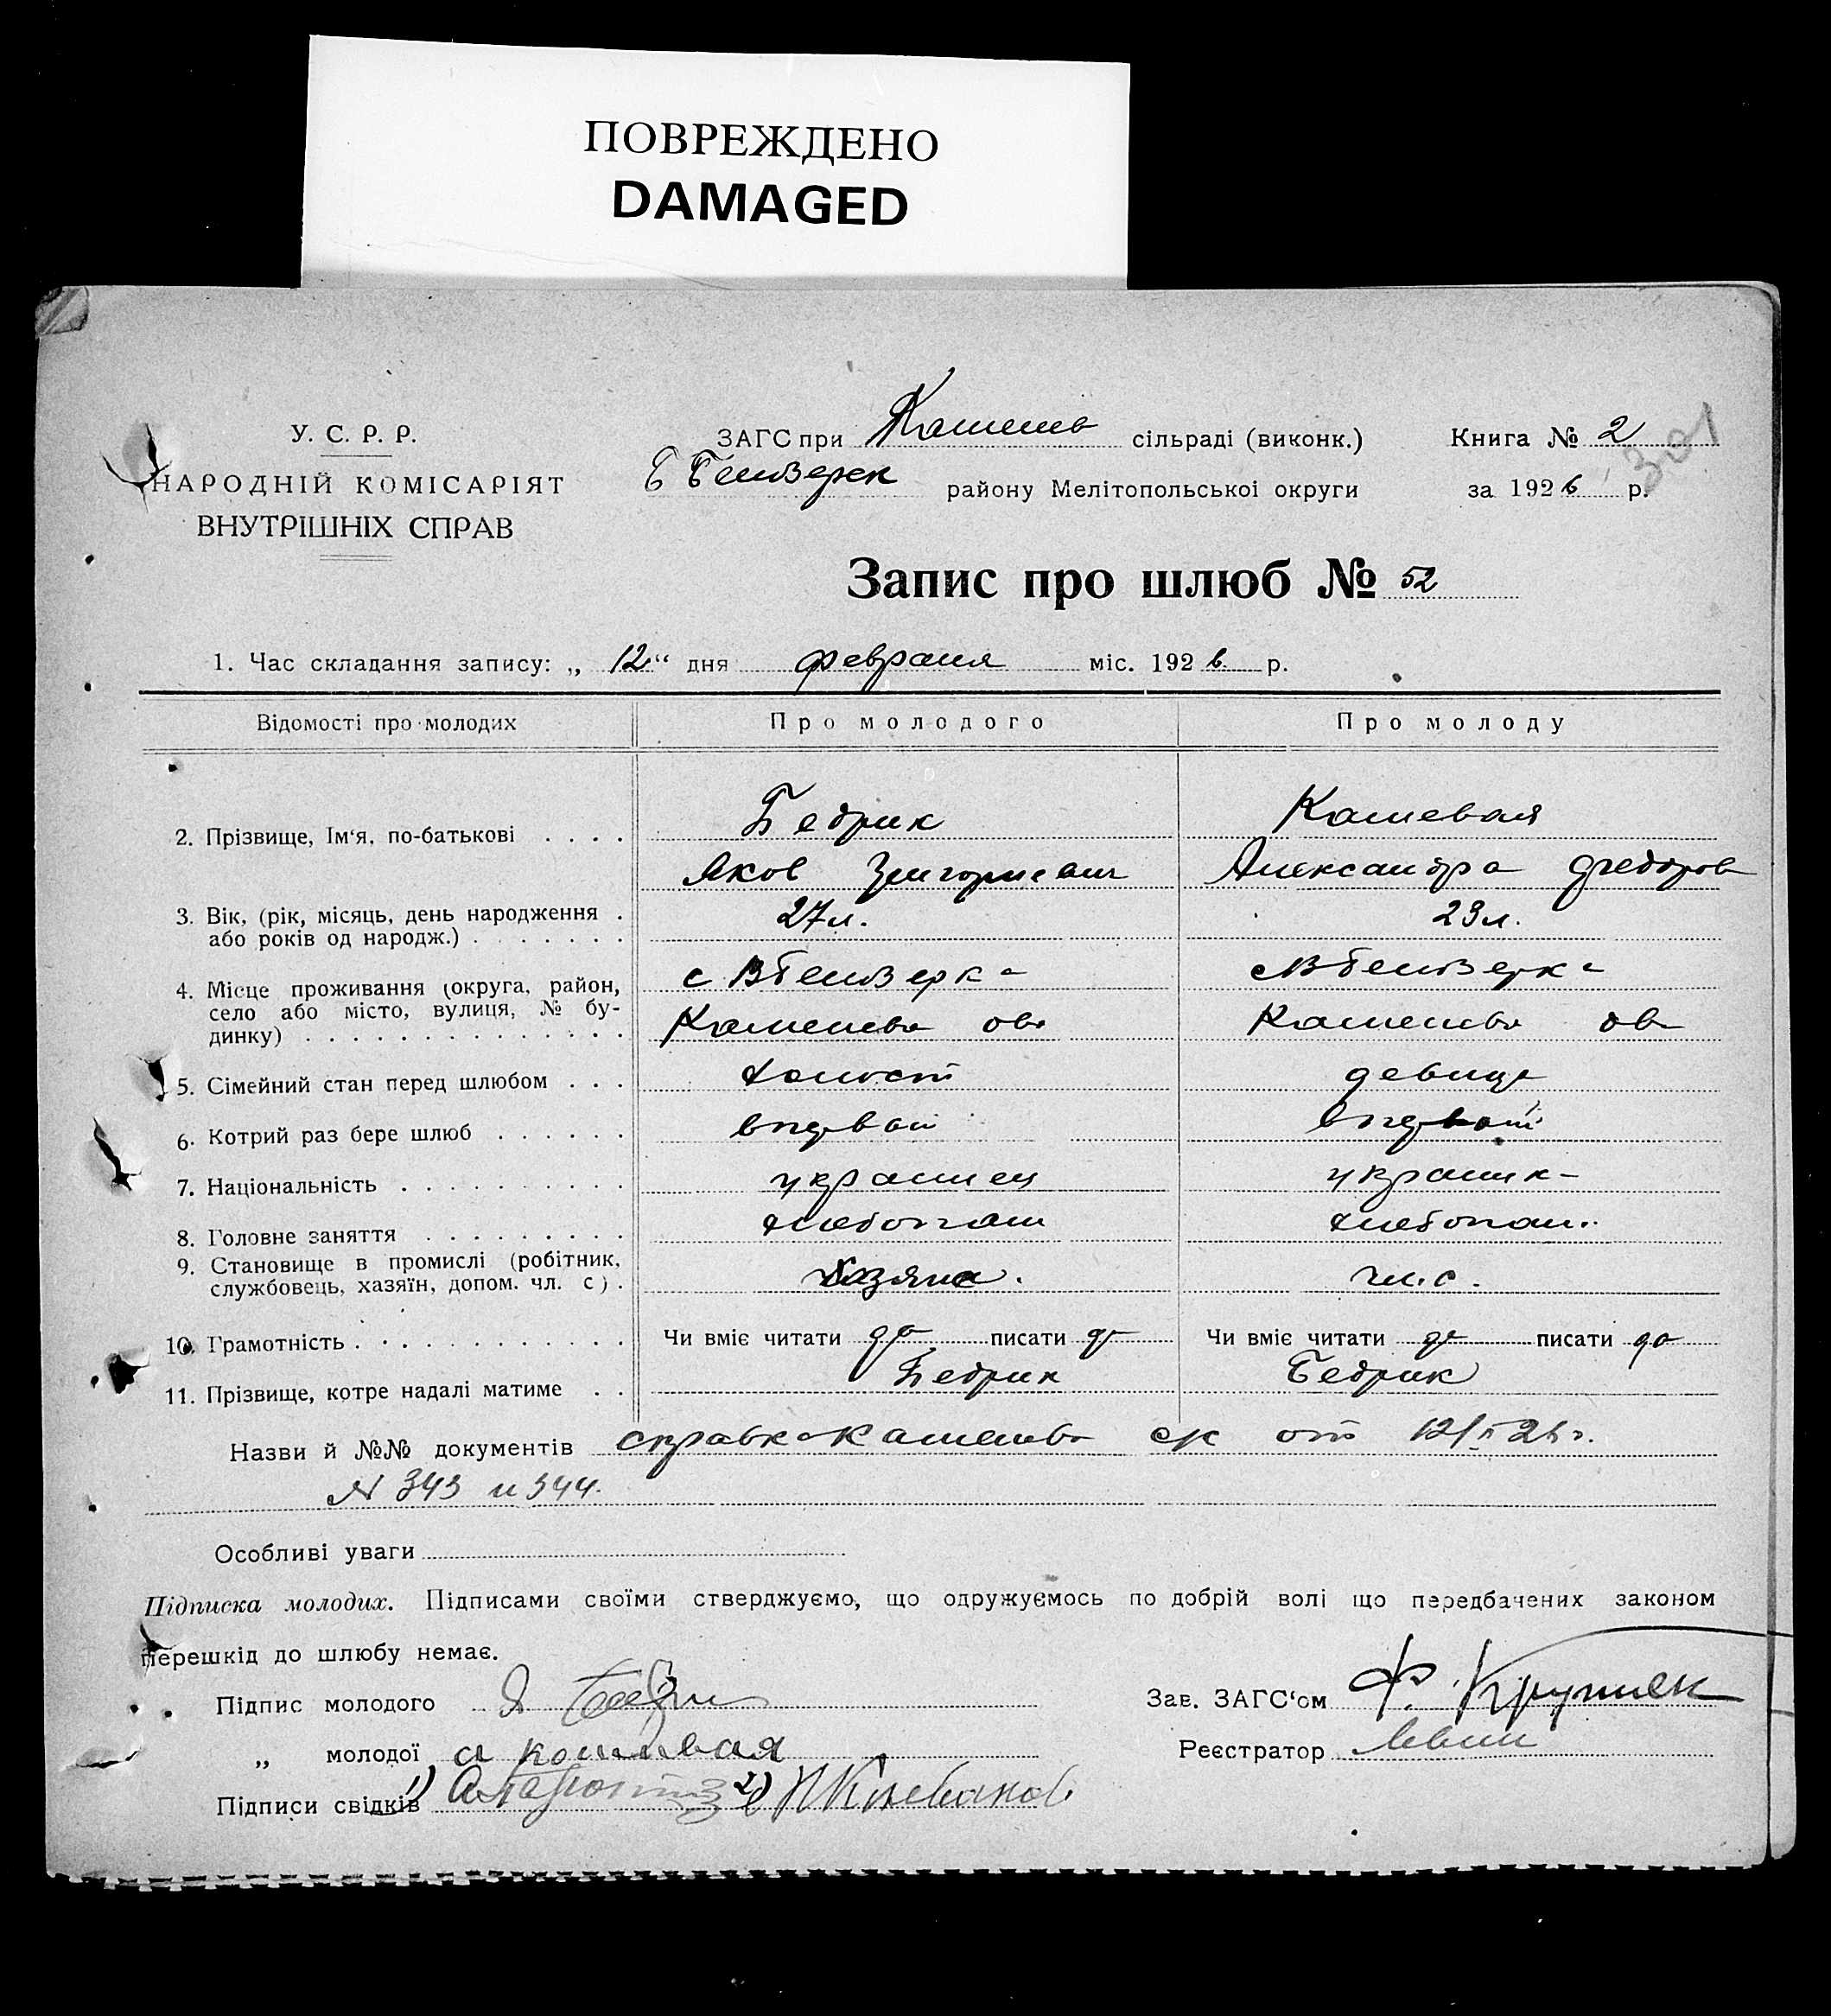 ПОВРЕЖДЕНО
DAMAGED
У. С. Р. Р.
НАРОДНІЙ КОМІСАРІЯТ
ВНУТРІШНІХ СПРАВ
ЗАГС при сільраді (виконк.)
району Мелітопольської округи
Книга № 2
301
за 1926 р.
Запис про шлюб № 52
1. Час складання запису: „ 12 “ дня февраля міс. 1926 р.
Відомості про молодих Про молодого Про молоду
2. Прізвище, Ім‘я, по-батькові . . . . Бедрик Кошевая
Яков Григориевич Александра Федоров
3. Вік, (рік, місяць, день народження . 27 л. 23 л.
або років од народж.) . . . . . . .
4. Місце проживання (округа, район,
село або місто, вулиця, № бу-
динку) . . . . . . . . . . . . . .
5. Сімейний стан перед шлюбом . . . холост девица
6. Котрий раз бере шлюб . . . . . . первый первый
7. Національність . . . . . . . . . . украинец украинк
8. Головне заняття . . . . . . . . . хлебопаш хлебопаш.
9. Становище в промислі (робітник,
службовець, хазяїн, допом. чл. с) . хозяин. чл. с.
10. Грамотність . . . . . . . . . . . Чи вміє читати да писати да Чи вміє читати да писати да
11. Прізвище, котре надалі матиме . . Бедрик Бедрик
Назви й №№ документів справка от 12/II 26 г.
N 343 и 344.
Особливі уваги
Підписка молодих. Підписами своїми стверджуємо, що одружуємось по добрій волі що передбачених законом
перешкід до шлюбу немає.
Підпис молодого Я Бедрик
„ молодої а кошевая
Підписи свідків 1) 2)
Зав. ЗАГС‘ом Ф.
Реєстратор